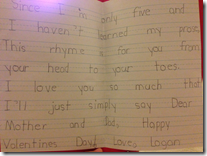 Since I'm only five and
I haven't learned my prose
This rhyme is for you from
your head to your toes.
I love you so much that
I'll just simply say Dear
Mother and Dad, Happy
Valentines Day! Loves Logan